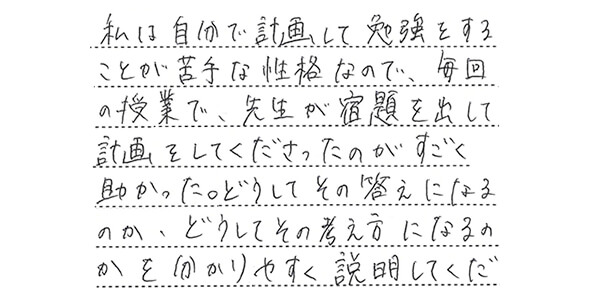 私は自分で計画して勉強をする
ことが苦手な性格なので、毎回
の授業で、先生が宿題を出して
計画をしてくださったのがすごく
助かった。どうしてその答えになる
のか、どうしてその考え方になるの
かを分かりやすく説明してくだ